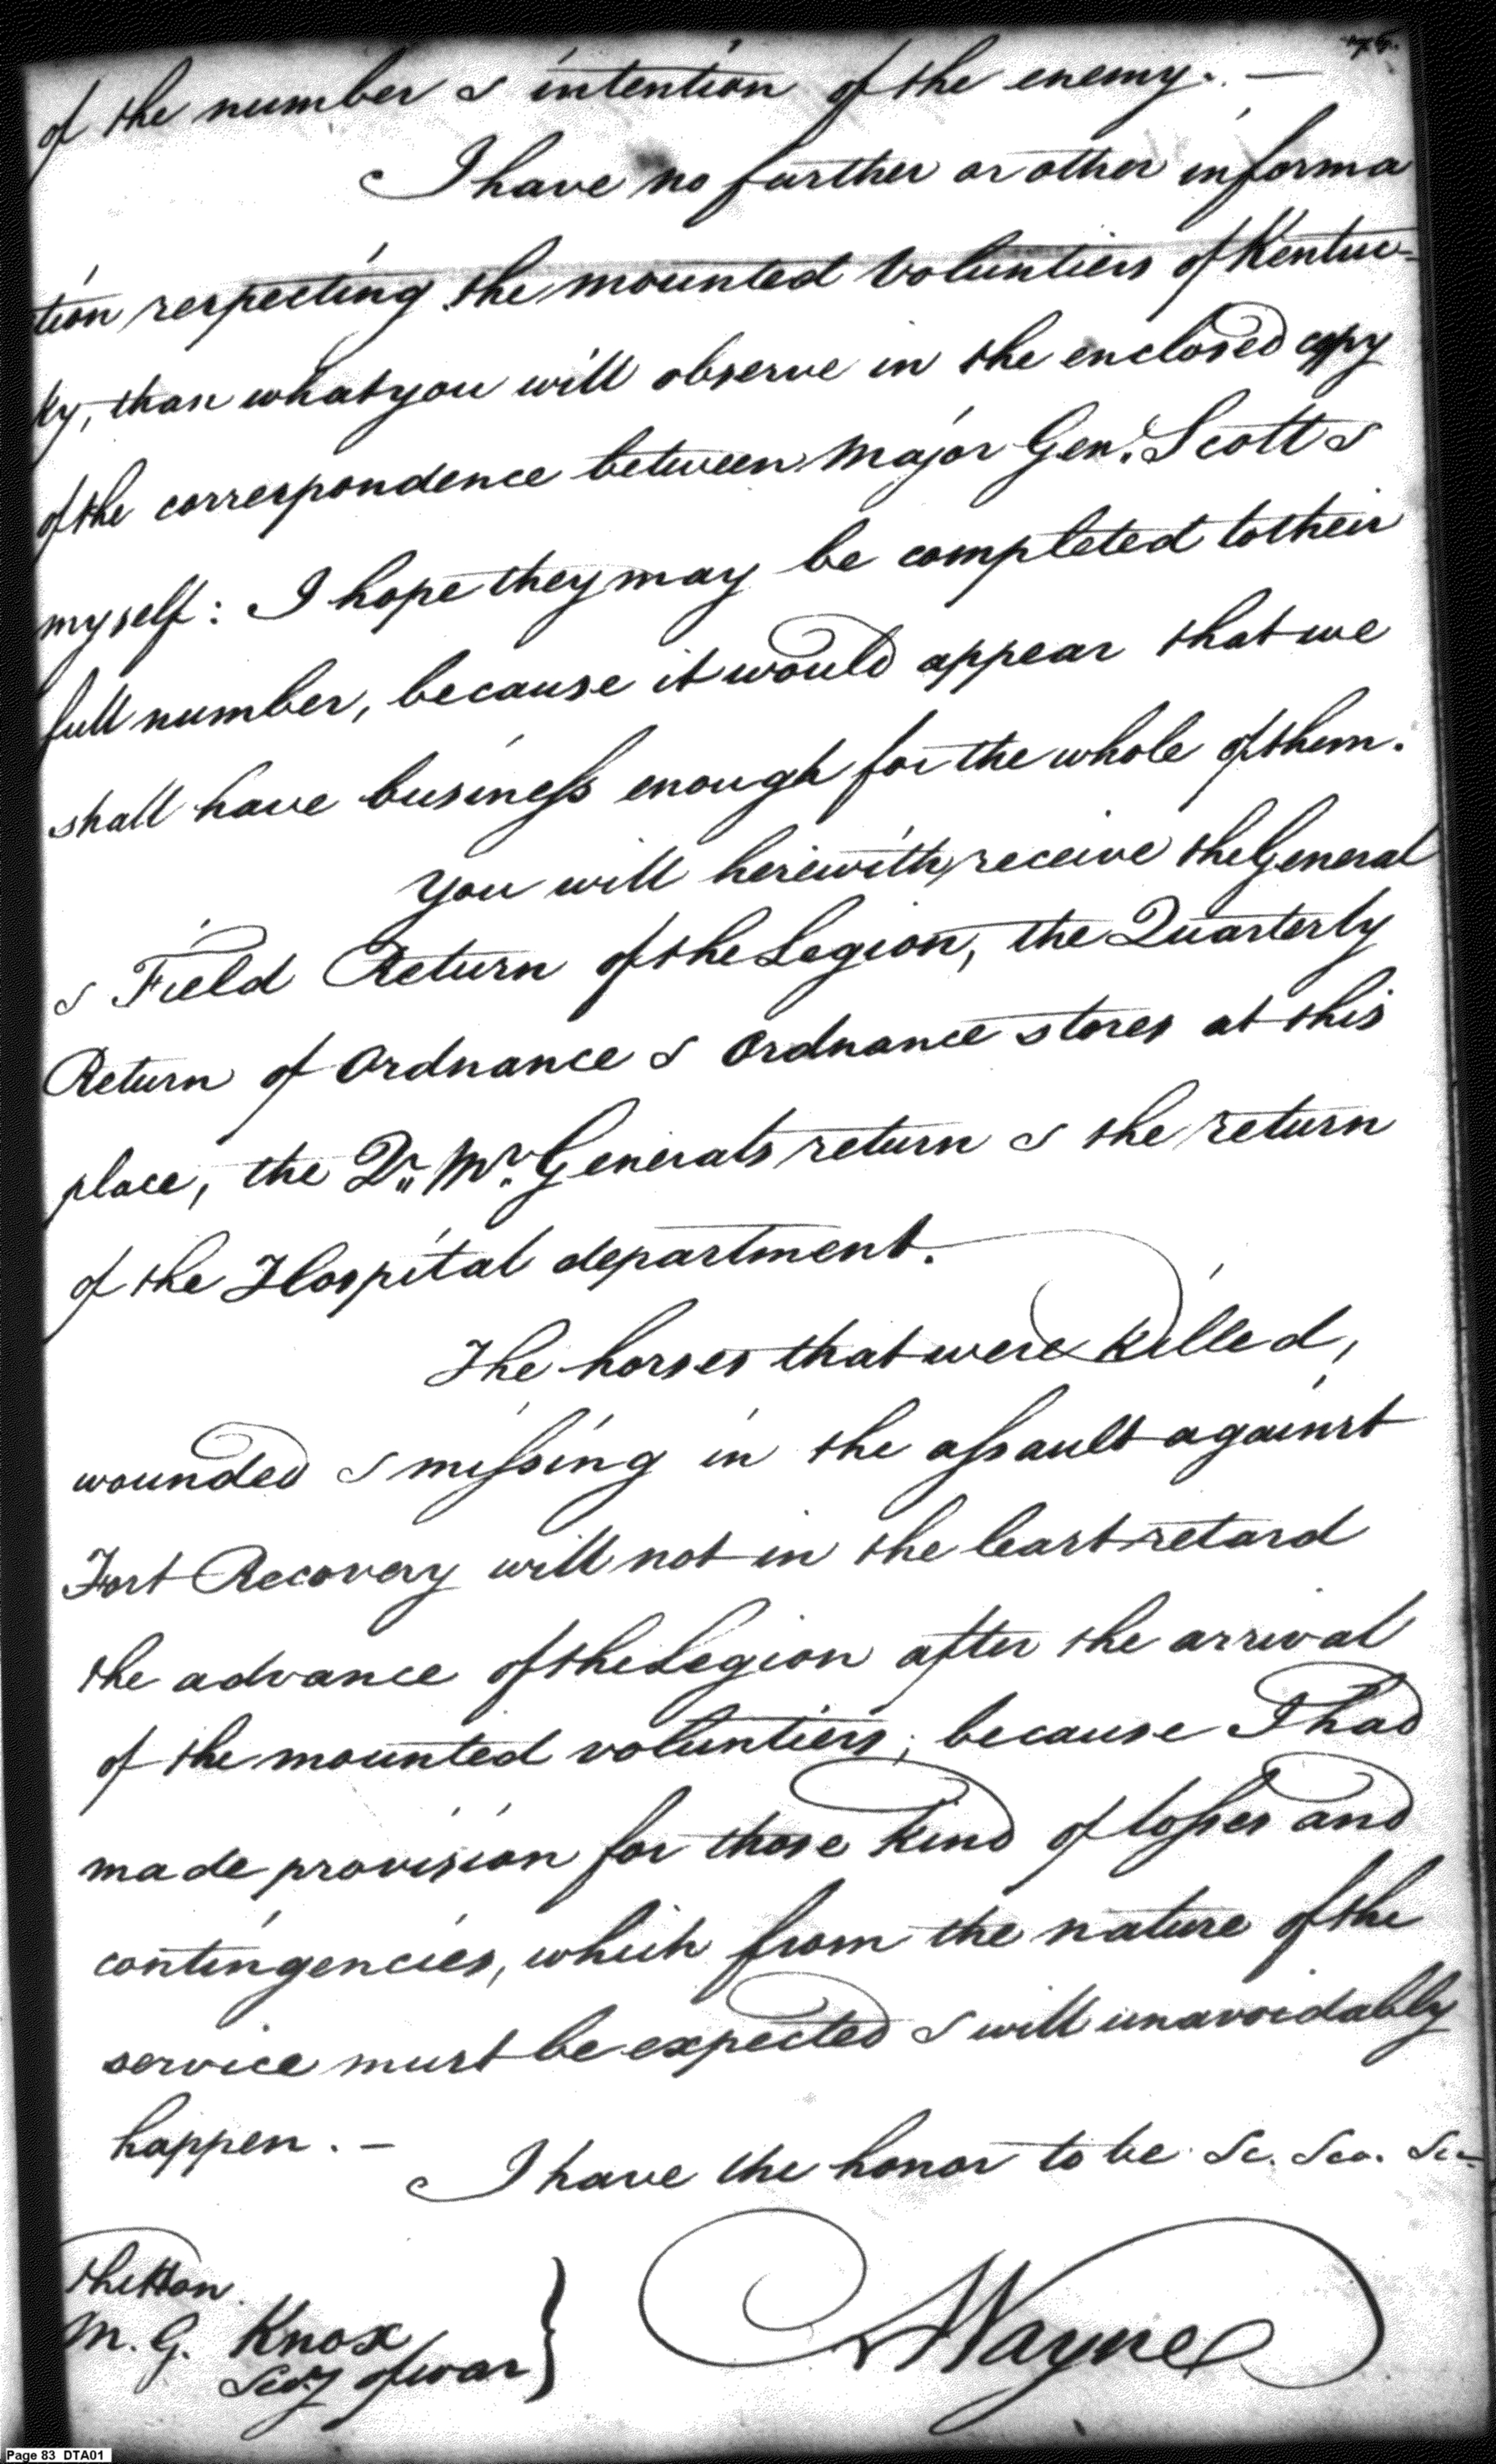 76.
of the number & intention of the enemy. —
I have no further or other informa
tion respecting the mounted Voluntiers of Kentuc-
ky, than what you will observe in the enclosed copy
of the correspondence between Major Gen. Scott &
myself: I hope they may be completed to their
full number, because it would appear that we
shall have business enough for the whole of them.
You will herewith receive the General
& Field Return of the Legion, the Quarterly
Return of Ordnance & Ordnance stores at this
place, the Qr. Mr. Generals return & the return
of the Hospital department.
The horses that were killed,
wounded & missing in the assault against
Fort Recovery will not in the least retard
the advance of the Legion after the arrival
of the mounted voluntiers; because I had
made provision for those kind of losses and
contingencies, which from the nature of the
service must be expected & will unavoidably
happen. —
I have the honor to be &c. &ca. &c-
The Hon.
M. G. Knox
Secy of war }
A Wayne
Page 83 DTA01